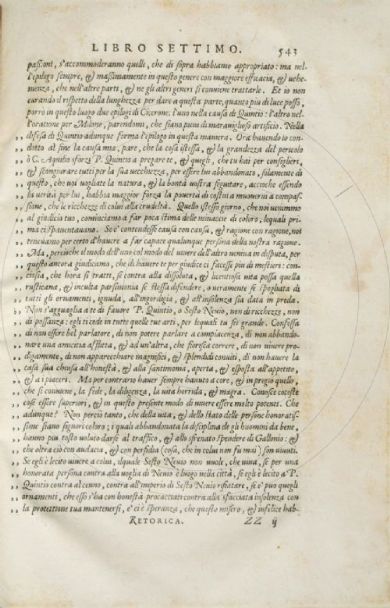 LIBRO SETTIMO. 543
passioni, s'accommoderanno quelli, che di sopra habbiamo appropriato: ma nel-
l'epilogo sempre, & massimamente in questo genere con maggiore efficacia, & vehe-
menza, che nell'altre parti, & ne gli altri generi si conviene trattarle. Et io non
curando il rispetto della lunghezza per dare a questa parte, quanto piu di luce posso,
porrò in questo luogo due epilogi di Cicerone; l'uno nella causa di Quintio: l'altro nel-
l'oratione per Milone, parendomi, che siano pieni di meraviglioso artificio. Nella
,, difesa di Quintio adunque forma l'epilogo in questa maniera. Ora havendo io con-
,, dotto al fine la causa mia, pare, che la cosa istessa, & la grandezza del pericolo
,, ò C. Aquilio sforzi P. Quintio a pregare te, & quegli, che tu hai per consiglieri,
,, & scongiurare tutti per la sua vecchiezza, per essere lui abbandonato, solamente di
,, questo, che voi vogliate la natura, & la bontà vostra seguitare, accioche essendo
,, la verità per lui, habbia maggior forza la povertà di costui a muovervi a compas-
,, sione, che le ricchezze di colui alla crudeltà. Quello stesso giorno, che noi venimmo
,, al giudicio tuo, cominciamo a far poca stima delle minaccie di coloro, lequali pri-
,, ma ci spaventavano. Se s'contendesse causa con causa, & ragione con ragione, noi
,, tenevamo per certo d'havere a far capace qualunque persona della nostra ragione.
,, Ma, perche il modo dell'uno col modo del vivere dell'altro veniva in disputa, per
,, questo ancora giudicamo, che di havere te per giudice ci facesse piu di mestieri: con-
,, ciosia, che hora si tratte, se contra alla dissoluta, & licentiosa vita possa quella
,, rusticana, & inculta parsimonia se stessa difendere, o veramente se spogliata di
,, tutti gli ornamenti, ignuda, all'ingordigia, & all'insolenza sia data in preda.
,, Non s'agguaglia a te di favore P. Quintio, o Sesto Nevio, non di ricchezze, non
,, di possanza: egli ti cede in tutte quelle tue arti, per lequali tu sei grande. Confessa
,, di non essere bel parlatore, di non potere parlare a compiacenza, di non abbando-
,, nare una amicitia afflitta, & ad un'altra, che fiorisca correre, di non vivere pro-
,, digamente, di non apparecchiare magnifici, & splendidi conviti, di non havere la
,, casa sua chiusa all'honestà, & alla santimonia, aperta, & esposta all'appetito,
,, & a i piaceri. Ma per contrario haver sempre havuto a core, & in pregio quello,
,, che si conviene, la fede, la diligenza, la vita horrida, & magra. Conosce coteste
,, cose essere superiori, & in questo presente modo di vivere essere molto potenti. Che
,, adunque? Non percio tanto, che della vita, & dello stato delle persone honoratis-
,, sime siano signori coloro; i quali abbandonata la disciplina de gli huomini da bene,
,, hanno piu tosto voluto darse al traffico, & allo sfrenato spendere di Gallonio: &
,, che oltra ciò con audacia, & con perfidia (cosa, che in colui non fu mai) son vivuti.
,, Se egli è lecito vivere a colui, ilquale Sesto Nevio non vuole, che viva, se per una
,, honorata persona contra alla voglia di Nevio è luogo nella città, se egli è lecito a P.
,, Quintio contra al cenno, contra all'imperio di Sesto Nevio rifiatare, se è può quegli
,, ornamenti, che esso s'ha con honestà procacciati contra alla sfacciata insolenza con
,, la protettione tua mantenersi, e' ci è speranza, che questo misero, & infelice hab-
RETORICA. ZZ ij